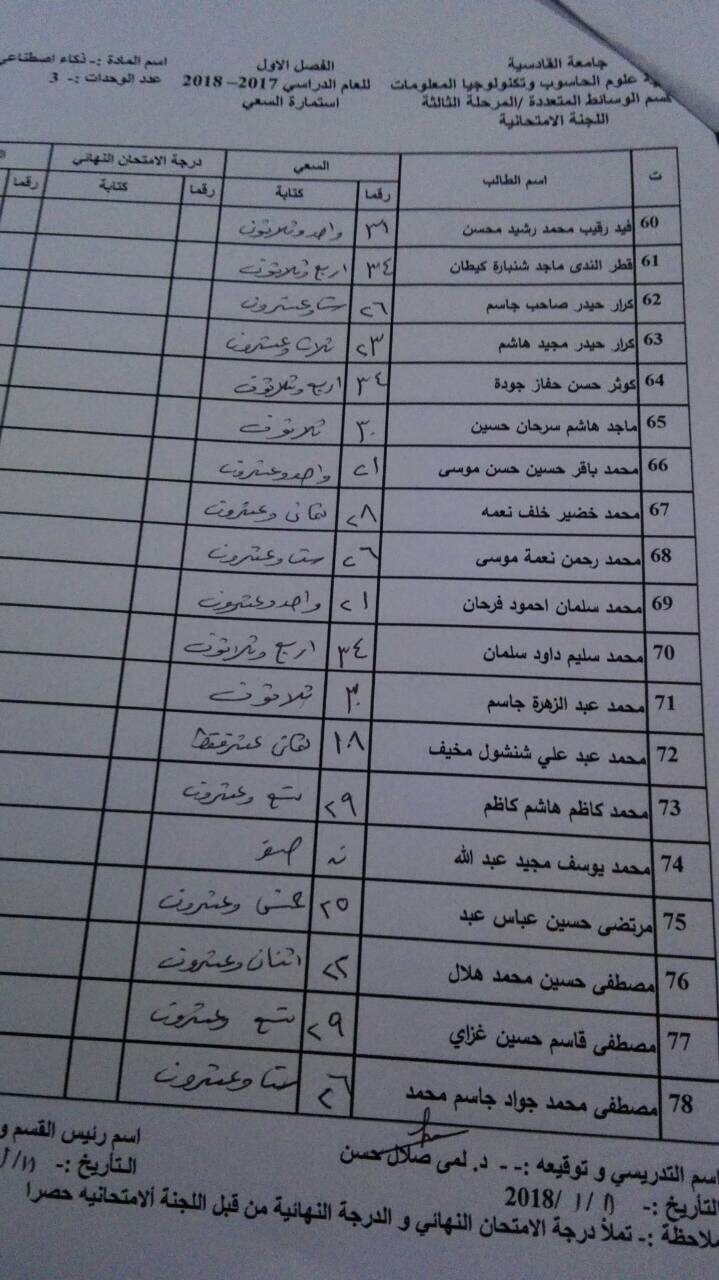 جامعة القادسية
ية علوم الحاسوب وتكنولوجيا المعلومات
قسم الوسائط المتعددة /المرحلة الثالثة
اللجنة الامتحانية
الفصل الاول
للعام الدراسي 2017– 2018
استمارة السعي
اسم المادة :- ذكاء اصطناعي
عدد الوحدات :- 3
ت اسم الطالب السعي درجة الامتحان النهائي
رقما كتابة رقما كتابة رقما
60 فيد رقيب محمد رشيد محسن ٣١ واحد وثلاثون
61 قطر الندى ماجد شنبارة كيطان ٣٤ اربع وثلاثون
62 كرار حيدر صاحب جاسم ٢٦ ستا وعشرون
63 كرار حيدر مجيد هاشم ٢٣ ثلاث وعشرون
64 كوثر حسن حفاز جودة ٣٤ اربع وثلاثون
65 ماجد هاشم سرحان حسين ٣٠ ثلاثون
66 محمد باقر حسين حسن موسى ٢١ واحد وعشرون
67 محمد خضير خلف نعمه ٢٨ ثمان وعشرون
68 محمد رحمن نعمة موسى ٢٦ ستا وعشرون
69 محمد سلمان احمود فرحان ٢١ واحد وعشرون
70 محمد سليم داود سلمان ٣٤ اربع وثلاثون
71 محمد عبد الزهرة جاسم ٣٠ ثلاثون
72 محمد عبد علي شنشول مخيف ١٨ ثمان عشر فقط
73 محمد كاظم هاشم كاظم ٢٩ تسع وعشرون
74 محمد يوسف مجيد عبد الله صفر
75 مرتضى حسين عباس عبد ٢٥ خمس وعشرون
76 مصطفى حسين محمد هلال ٢٢ اثنان وعشرون
77 مصطفى قاسم حسين غزاي ٢٩ تسع وعشرون
78 مصطفى محمد جواد جاسم محمد ٢٦ ستا وعشرون
اسم التدريسي و توقيعه :- - د. لمى ضلال حسن
التأريخ :- / ١ /2018
اسم رئيس القسم و
التأريخ :-
ملاحظة :- تملأ درجة الامتحان النهائي و الدرجة النهائية من قبل اللجنة ألامتحانيه حصرا